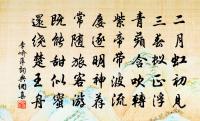 二月虹初見
三春蟻正浮
青蘋含吹轉
紫蒂帶波流
屢逐明神薦
常隨旅客遊
既能甜似蜜
還繞楚王舟
李嶠萍詞典網集